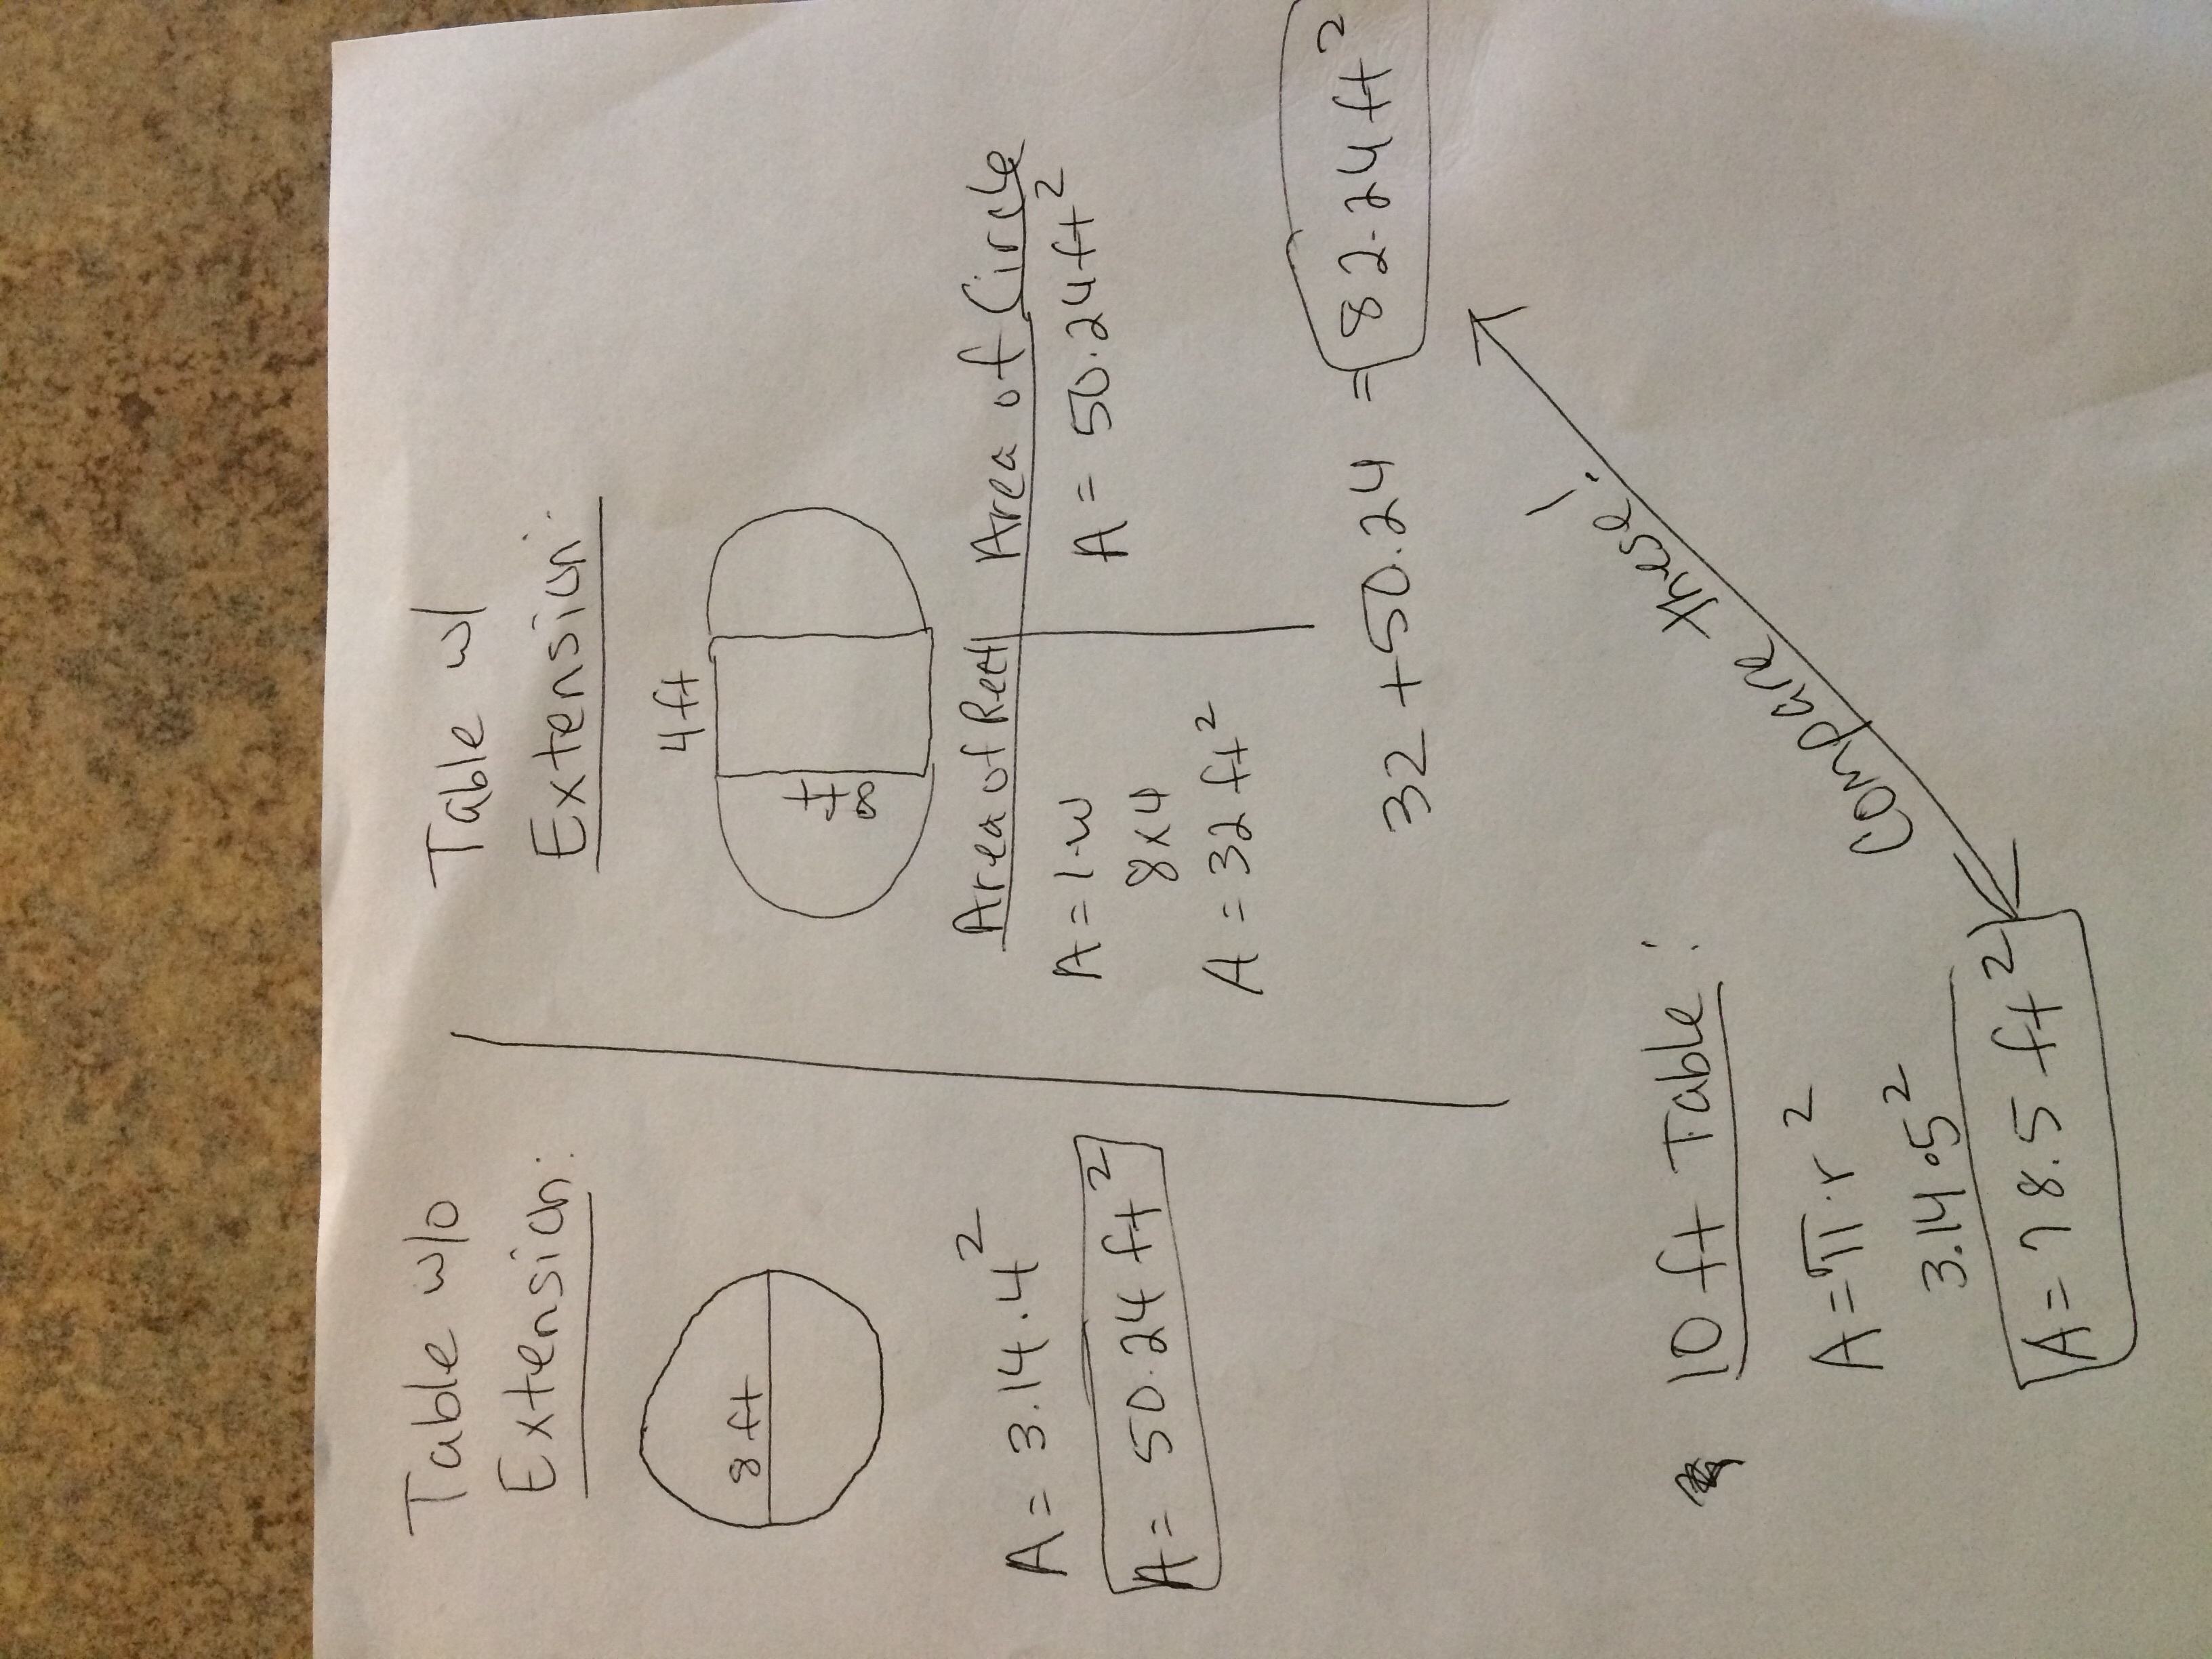 Table w/o
Extension:
8 ft
A = 3.14 · 4²
A = 50.24 ft²
Table w/
Extension:
4 ft
8 ft
Area of Rect
A = l·w
8 x 4
A = 32 ft²
Area of Circle
A = 50.24 ft²
32 + 50.24 = 82.24 ft²
Compare these!
10 ft Table:
A = π · r²
3.14 · 5²
A = 78.5 ft²